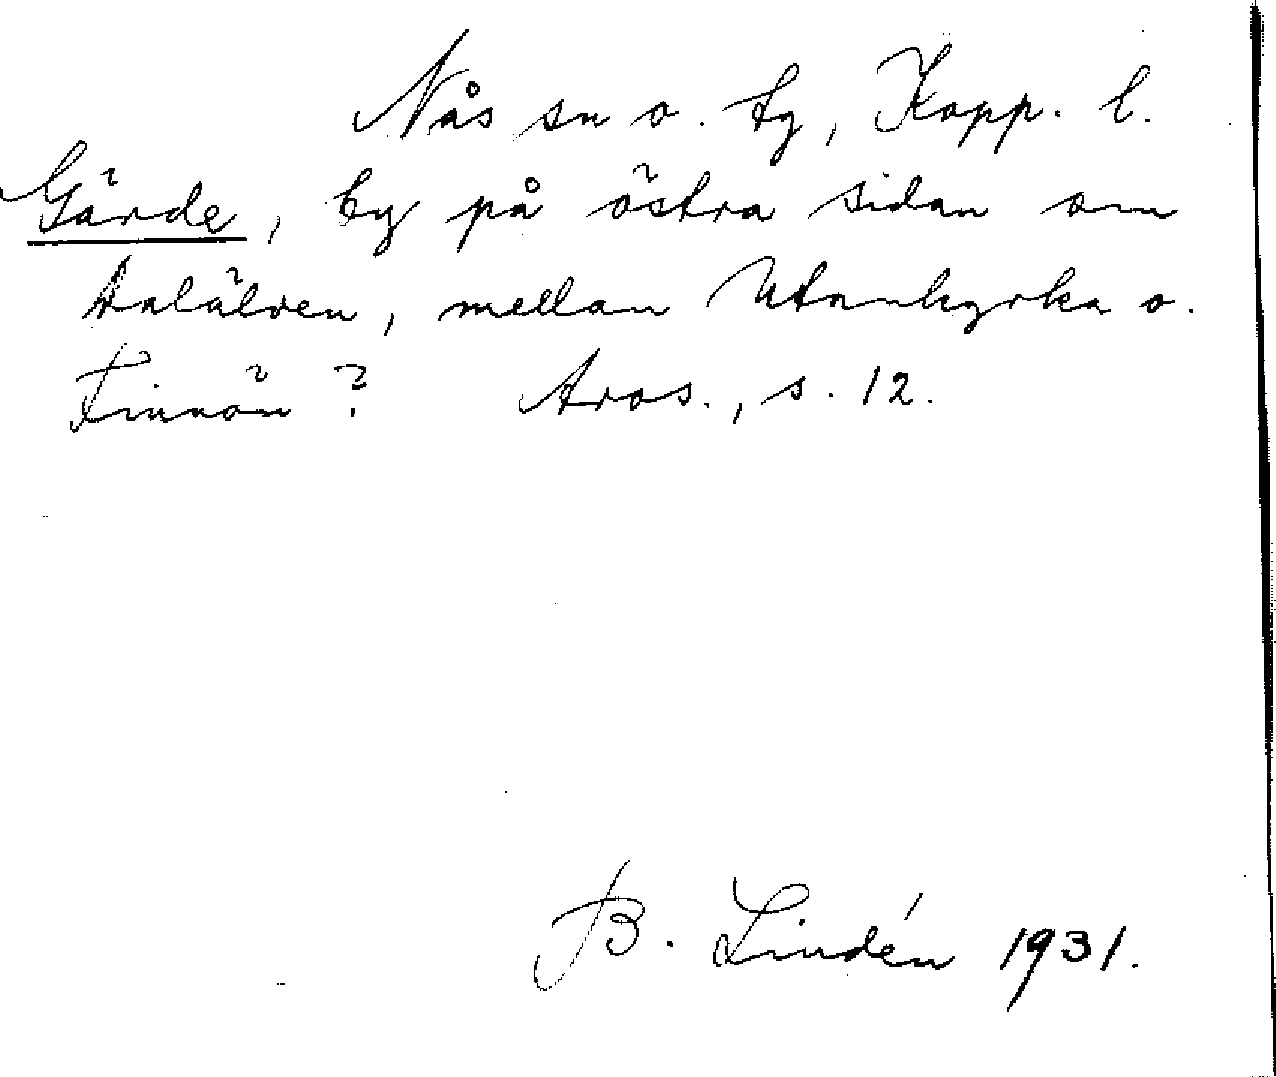 Nås sn o. tg, Kopp. l.
Gärde, by på östra sidan om
Dalälven, mellan Utankyrka o.
Finnön? Aros., s. 12.
B. Lindén 1931.